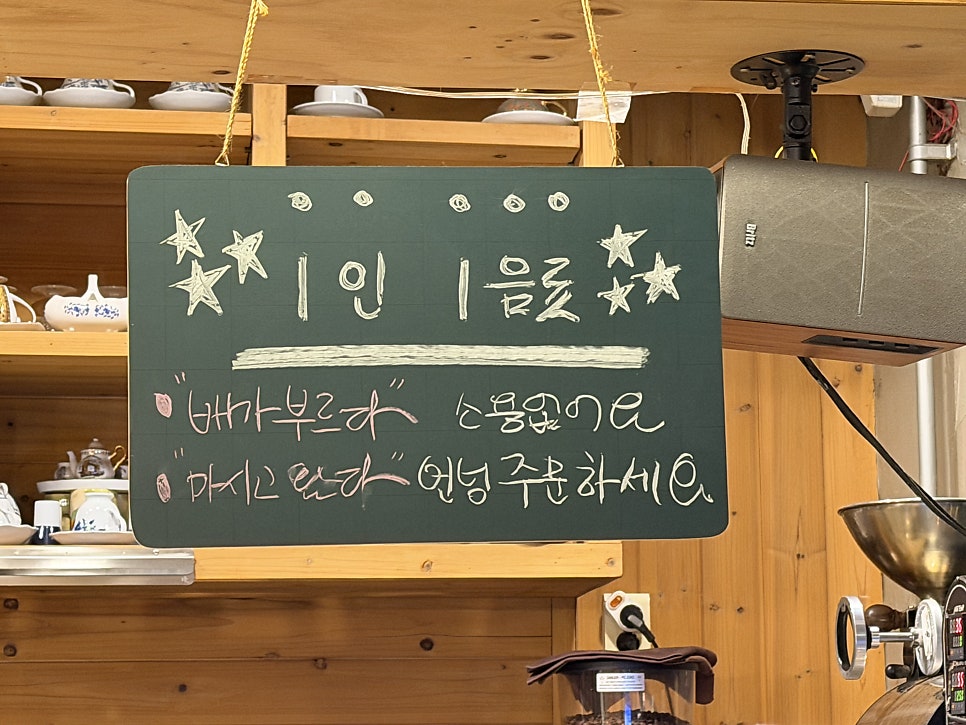 1인 1음료
"배가부르다" 소용없어요
"마시고 왔다" 언넝 주문하세요
Britz